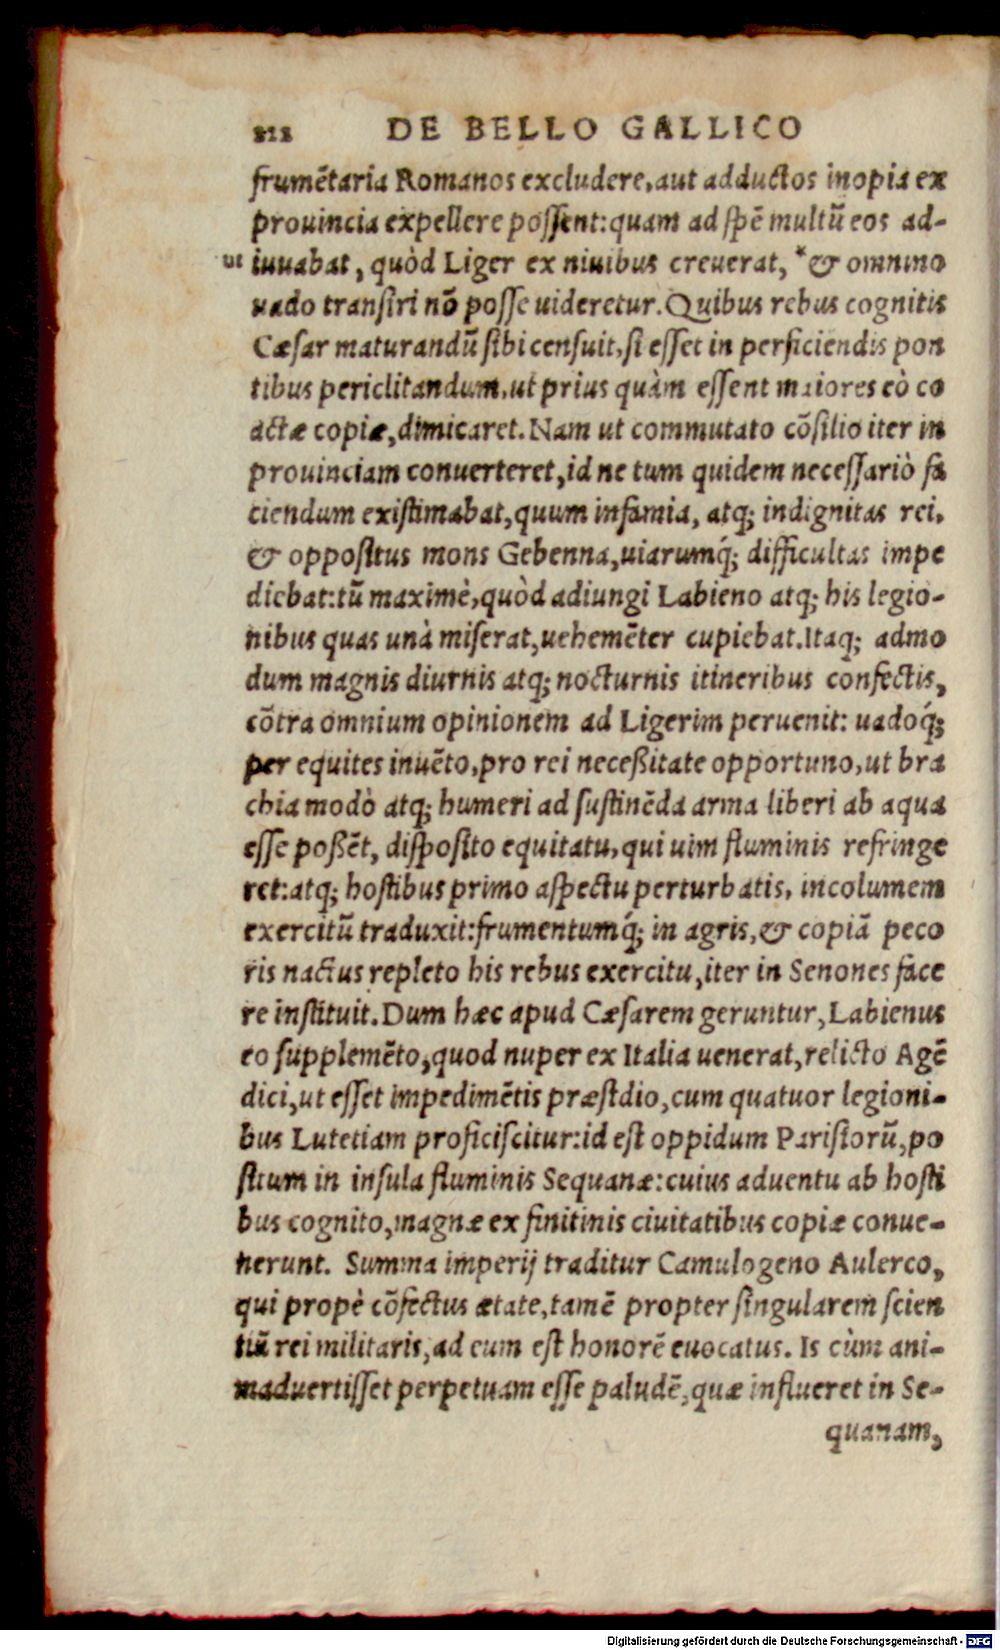 212 DE BELLO GALLICO
frumētaria Romanos excludere, aut adductos inopia ex
prouincia expellere possent: quam ad spē multū eos ad-
ut iuuabat, quòd Liger ex niuibus creuerat, *& omnino
uado transiri nō posse uideretur. Quibus rebus cognitis
Cæsar maturandū sibi censuit, si esset in perficiendis pon
tibus periclitandum, ut prius quàm essent maiores eò co
actæ copiæ, dimicaret. Nam ut commutato cōsilio iter in
prouinciam conuerteret, id ne tum quidem necessariò fa
ciendum existimabat, quum infamia, atq; indignitas rei,
& oppositus mons Gebenna, uiarumq́; difficultas impe
diebat: tū maximè, quòd adiungi Labieno atq; his legio-
nibus quas unà miserat, uehemēter cupiebat. Itaq; admo
dum magnis diurnis atq; nocturnis itineribus confectis,
cōtra omnium opinionem ad Ligerim peruenit: uadoq́;
per equites inuēto, pro rei neceßitate opportuno, ut bra
chia modò atq; humeri ad sustinēda arma liberi ab aqua
esse poßēt, disposito equitatu, qui uim fluminis refringe
ret: atq; hostibus primo aspectu perturbatis, incolumem
exercitū traduxit: frumentumq́; in agris, & copiā peco
ris nactus repleto his rebus exercitu, iter in Senones face
re instituit. Dum hæc apud Cæsarem geruntur, Labienus
eo supplemēto, quod nuper ex Italia uenerat, relicto Agē
dici, ut esset impedimētis præsidio, cum quatuor legioni-
bus Lutetiam proficiscitur: id est oppidum Parisiorū, po
situm in insula fluminis Sequanæ: cuius aduentu ab hosti
bus cognito, magnæ ex finitinis ciuitatibus copiæ conue-
nerunt. Summa imperij traditur Camulogeno Aulerco,
qui propè cōfectus ætate, tamē propter singularem scien
tiā rei militaris, ad eum est honorē euocatus. Is cùm ani-
maduertisset perpetuam esse paludē, quæ influeret in Se-
quanam,
Digitalisierung gefördert durch die Deutsche Forschungsgemeinschaft - DFG